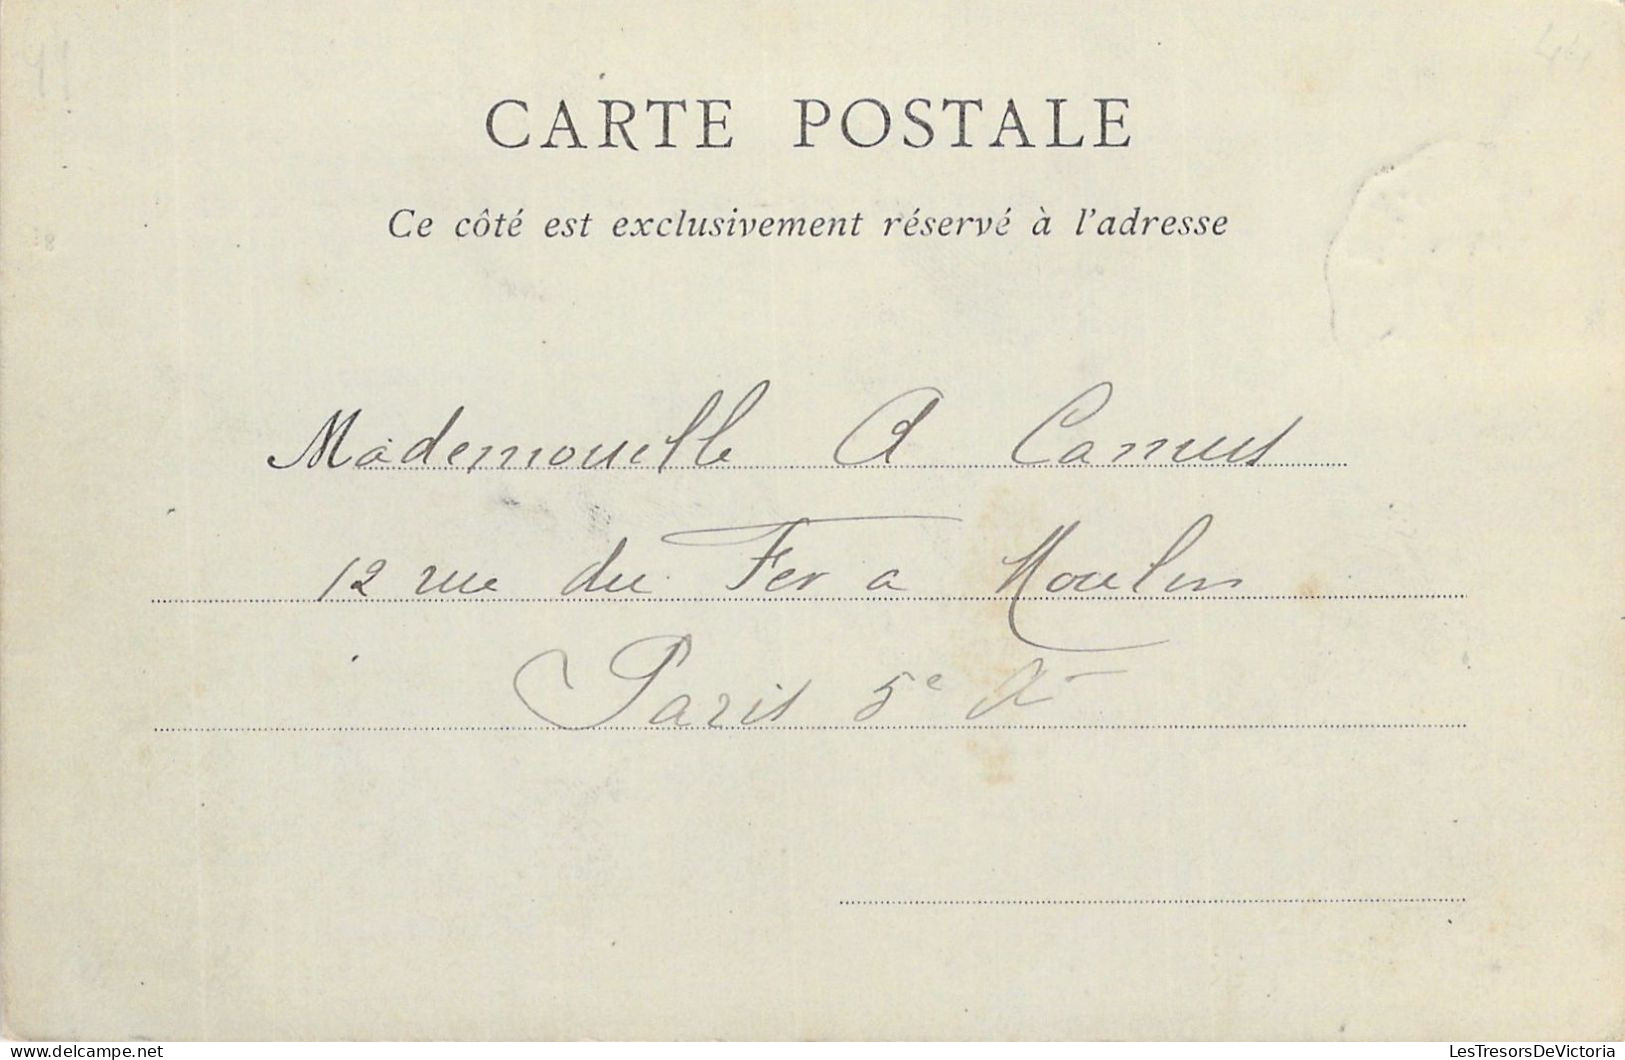 44
CARTE POSTALE
Ce côté est exclusivement réservé à l'adresse
Mademoiselle A Camus
12 rue du Fer a Moulin
Paris 5e
LesTresorsDeVictoria
© delcampe.net